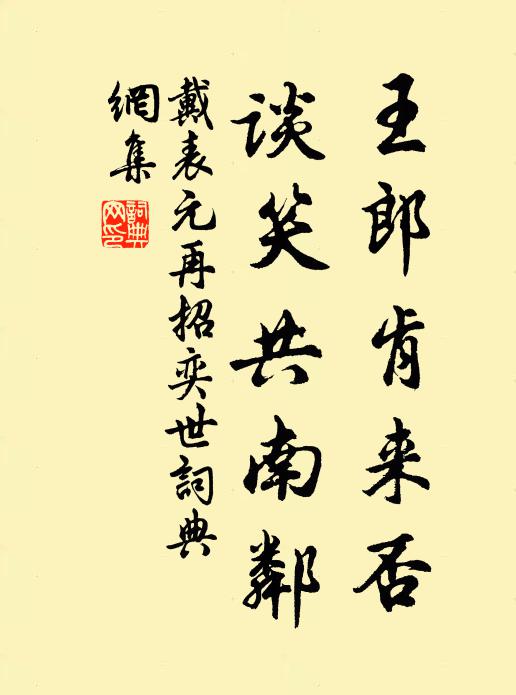 王郎肯来否
谈笑共南鄰
戴表元再招奕世詞典
網集
詞典
网印